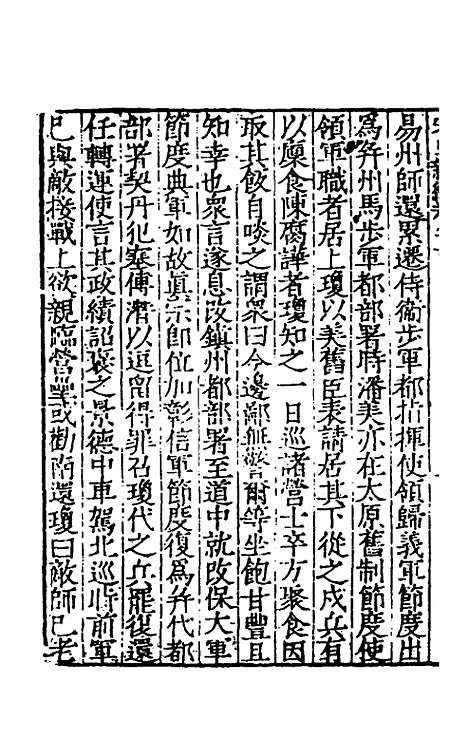 易州師還累遷侍衛步軍都指揮使領歸義軍節度出
為并州馬步軍都部署時潘美亦在太原舊制節度使
領軍職者居上瓊以美舊臣表請居其下從之戍兵有
以廩食陳腐譁者瓊知之一日巡諸營士卒方聚食因
取其飲自啖之謂眾曰今邊鄙無警爾等坐飽甘豐且
知幸也眾言遂息改鎮州都部署至道中就改保大軍
節度典軍如故眞宗卽位加彰信軍節度復為并代都
部署契丹犯塞傅潛以逗留得罪召瓊代之兵罷復還
任轉運使言其政績詔褒之景德中車駕北巡時前軍
已與敵接戰上欲親臨營壘或勸南還瓊曰敵師已老